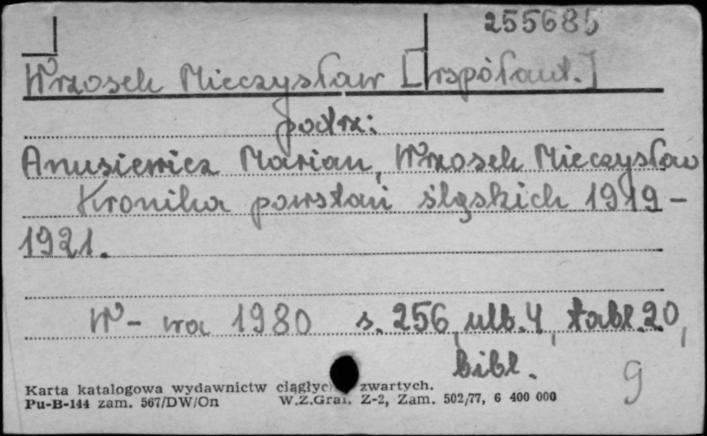 255685
Wrzosek Mieczysław [współaut.]
podrz:
Anusiewicz Marian, Wrzosek Mieczysław
Kronika powstań śląskich 1919-
1921.
W-wa 1980 s. 256, ulb. 4, tabl. 20,
bibl.
9
Karta katalogowa wydawnictw ciągłyc zwartych.
Pu-B-144 zam. 567/DW/On W.Z.Graf. Z-2, Zam. 502/77, 6 400 000